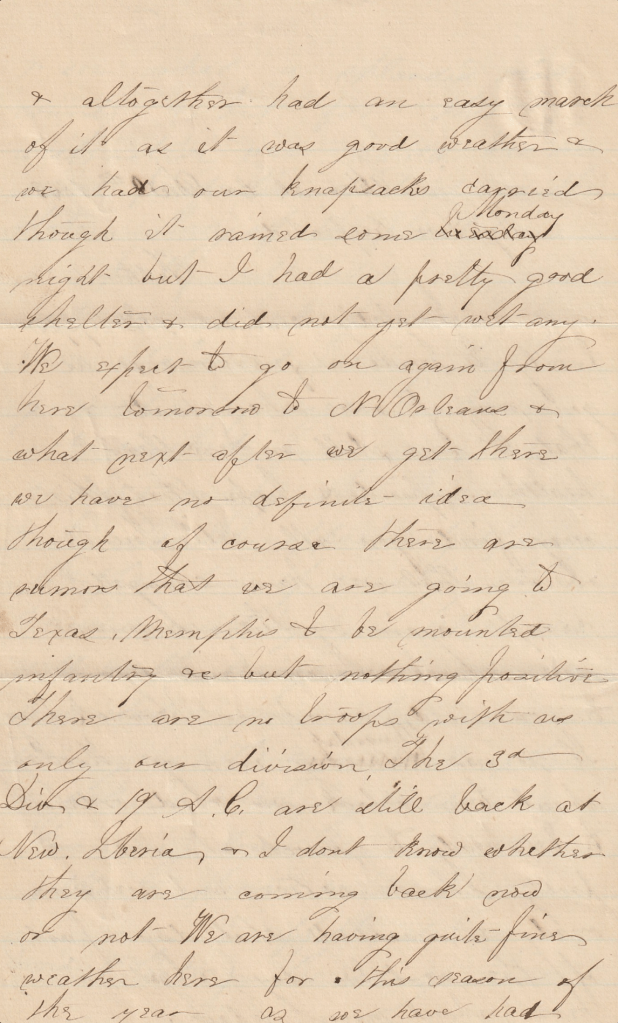 & altogether had an easy march
of it as it was good weather &
we had our knapsacks carried
though it rained some Monday
night but I had a pretty good
shelter & did not get wet any.
We expect to go on again from
here tomorrow to N Orleans &
what next after we get there
we have no definite idea
though of course there are
rumors that we are going to
Texas, Memphis to be mounted
infantry &c but nothing positive
There are no troops with us
only our division, The 3d
Div & 19 A.C. are still back at
New. Iberia, & I dont know whether
they are coming back now
or not We are having quite fine
weather here for this season of
the year as we have had